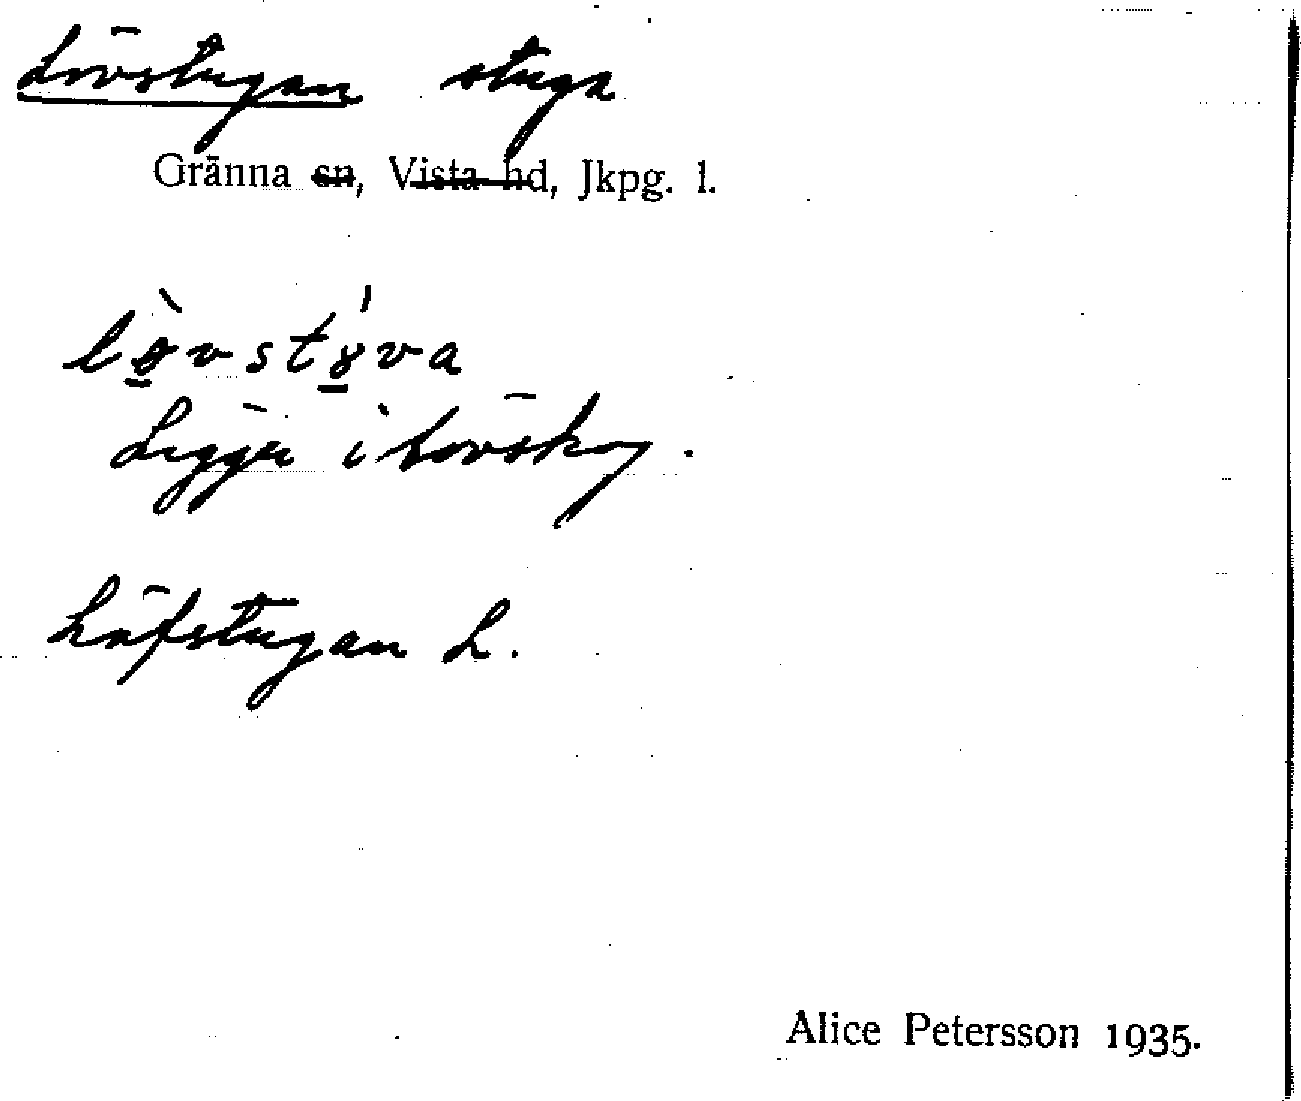 Lövstugan stuga
Gränna sn, Vista hd, Jkpg. l.
lövstöva
Ligger i lövskog.
Löfstugan L.
Alice Petersson 1935.